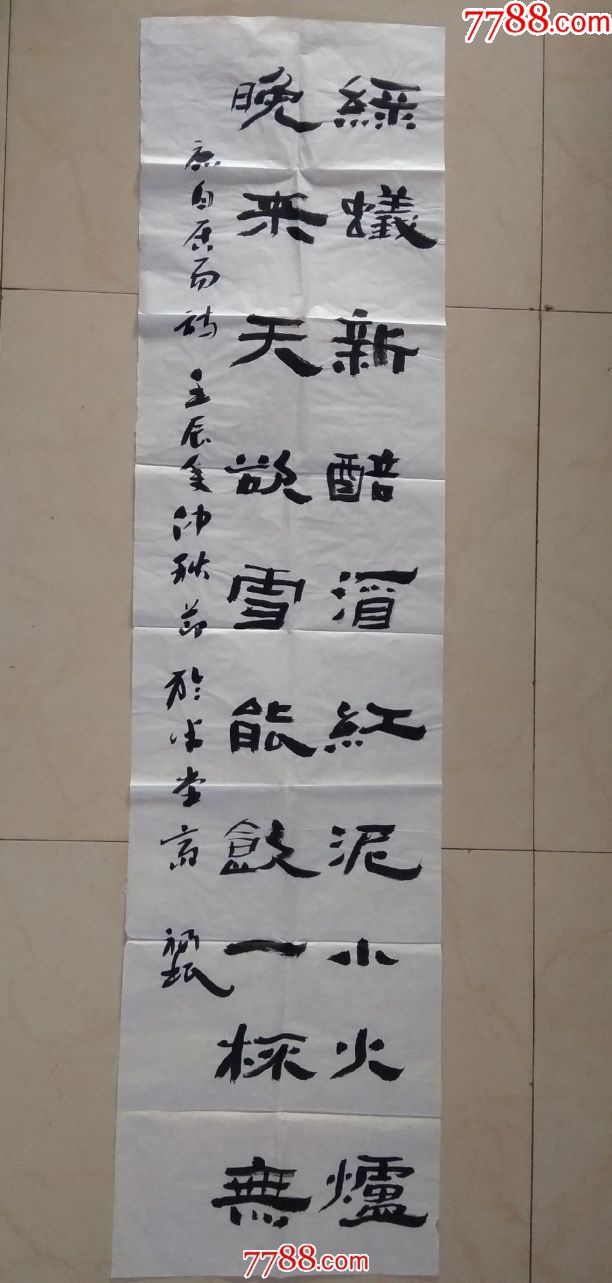 7788.com
綠蟻新醅酒紅泥小火爐
晚来天欲雪能飲一杯無
白居易诗 壬辰年仲秋节於半堂
7788.com